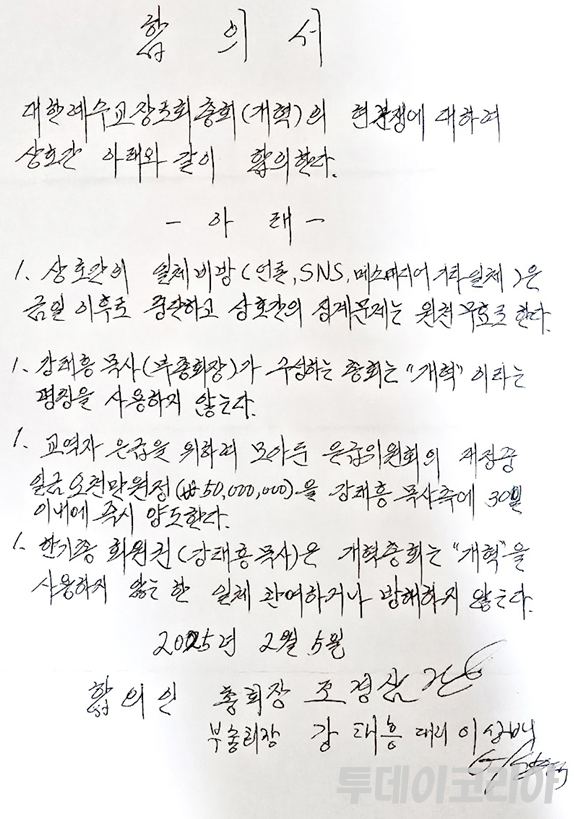 합 의 서
대한예수교장로회총회(개혁)의 현분쟁에 대하여
상호간 아래와 같이 합의한다.
- 아 래 -
1. 상호간의 일체비방(언론, SNS, 매스미디어 기타일체)은
금일 이후로 중단하고 상호간의 징계문제는 원천무효로 한다.
1. 강태흥 목사(부총회장)가 구성하는 총회는 "개혁" 이라는
명칭을 사용하지 않는다.
1. 교역자 은급을 위하여 모아둔 은급위원회의 재정중
일금오천만원정(₩50,000,000)을 강태흥 목사측에 30일
이내에 즉시 양도한다.
1. 한기총 회원권(강태흥목사)은 개혁총회는 "개혁"을
사용하지 않는 한 일체 관여하거나 방해하지 않는다.
2025년 2월 5일
합의인 총회장 조경삼
부총회장 강태흥 대리 이상백
투데이코리아